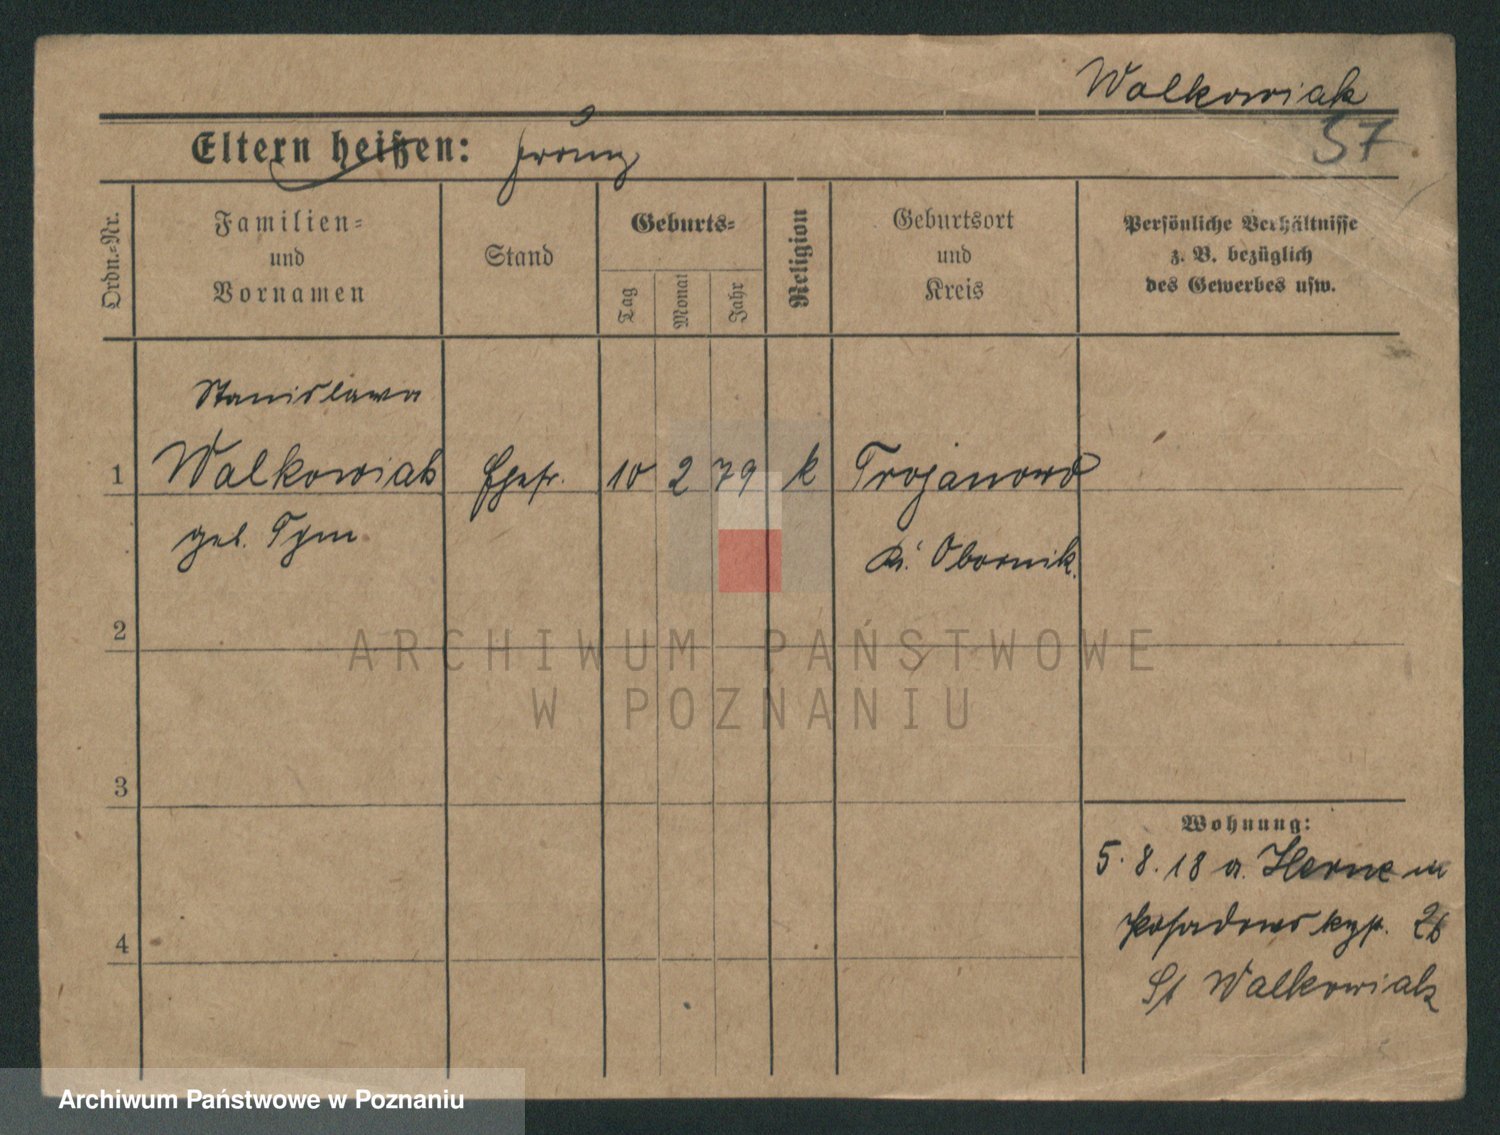 Walkowiak
57
Eltern heißen: Franz
Ordn.-Nr.
Familien-
und
Vornamen
Stand
Geburts-
Tag
Monat
Jahr
Religion
Geburtsort
und
Kreis
Persönliche Verhältnisse
z. B. bezüglich
des Gewerbes usw.
Stanislawa
1 Walkowiak Ehefr. 10 2 79 k Trojanowo
geb.
Kr. Obornik.
2
3
4
Wohnung:
5. 8. 18 a. Herne
26
St Walkowiak
ARCHIWUM PAŃSTWOWE
W POZNANIU
Archiwum Państwowe w Poznaniu